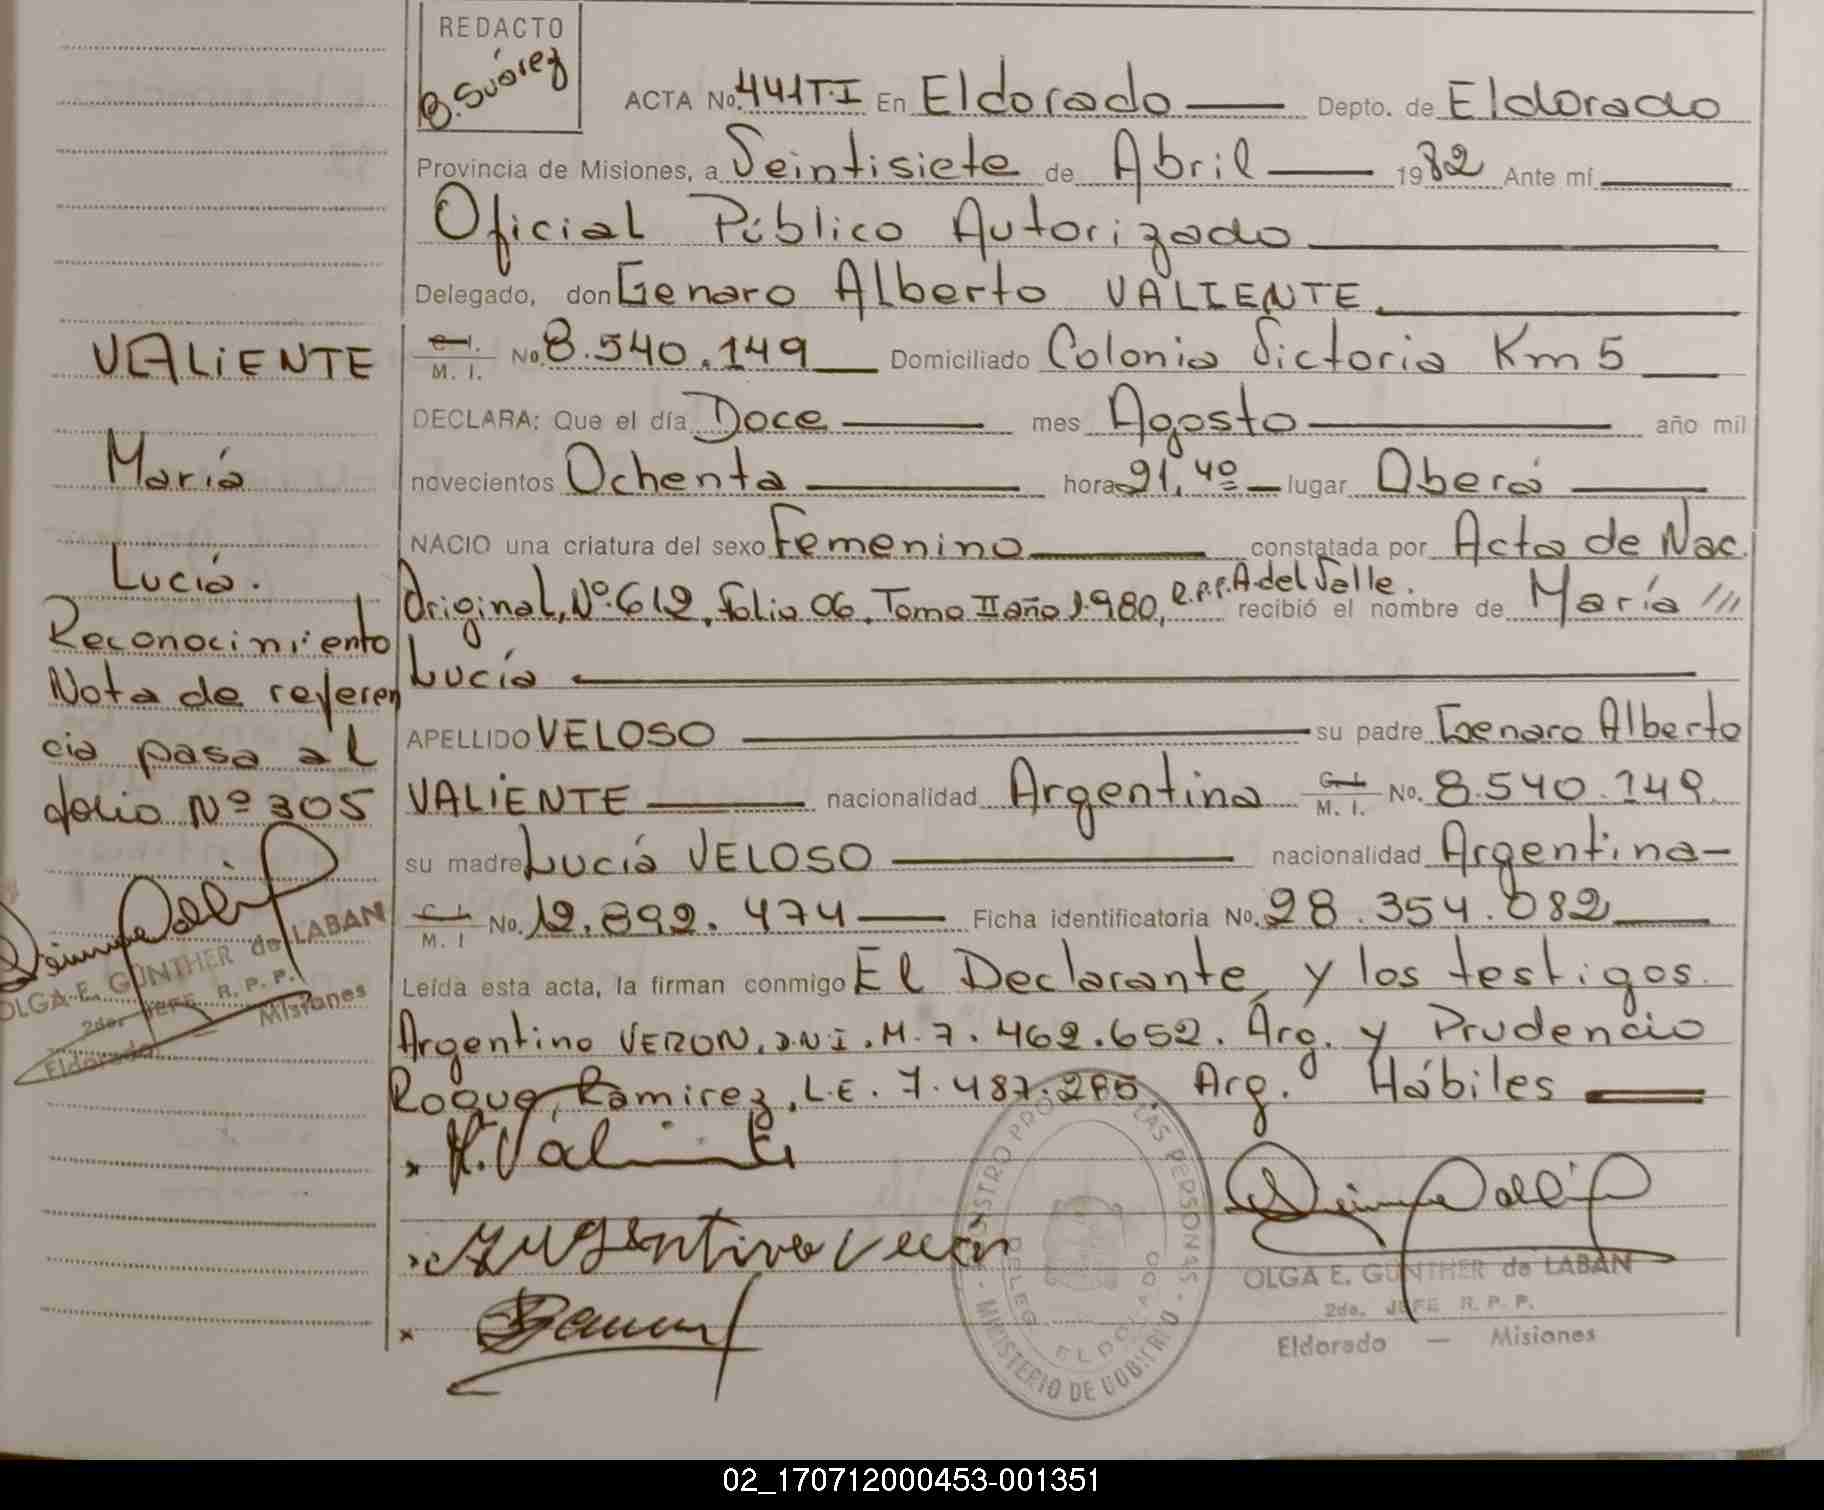 REDACTO
B. Suárez
ACTA No. 441 T.I En Eldorado Depto. de Eldorado
Provincia de Misiones, a Veintisiete de Abril 1982 Ante mí
Oficial Público Autorizado
Delegado, don Genaro Alberto VALIENTE
C. I. M. I. No. 8.540.149 Domiciliado Colonia Victoria Km 5
DECLARA: Que el día Doce mes Agosto año mil
novecientos Ochenta hora 21,40 lugar Oberá
NACIO una criatura del sexo Femenino constatada por Acta de Nac.
Original, Nº 612, folio 06, Tomo II año 1.980, R.P.P. A. del Valle. recibió el nombre de María ///
Lucía
APELLIDO VELOSO su padre Genaro Alberto
VALIENTE nacionalidad Argentina C. I. M. I. No. 8.540.149
su madre Lucía VELOSO nacionalidad Argentina-
C. I. M. I No. 12.892.474 Ficha identificatoria No. 28.354.082
Leída esta acta, la firman conmigo El Declarante, y los testigos.
Argentino VERON, D.N.I. M. 7.462.652. Arg. y Prudencio
Roque, Ramirez, L.E. 7.487.285. Arg. Hábiles
VALIENTE
María
Lucía.
Reconocimiento
Nota de referen
cia pasa al
folio Nº 305
OLGA E. GÜNTHER de LABAN
2do. JEFE R. P. P.
Eldorado — Misiones
Argentino Veron
REGISTRO PROV. DE LAS PERSONAS
MINISTERIO DE GOBIERNO
DELEG. ELDORADO
OLGA E. GÜNTHER de LABAN
2do. JEFE R. P. P.
Eldorado — Misiones
02_170712000453-001351